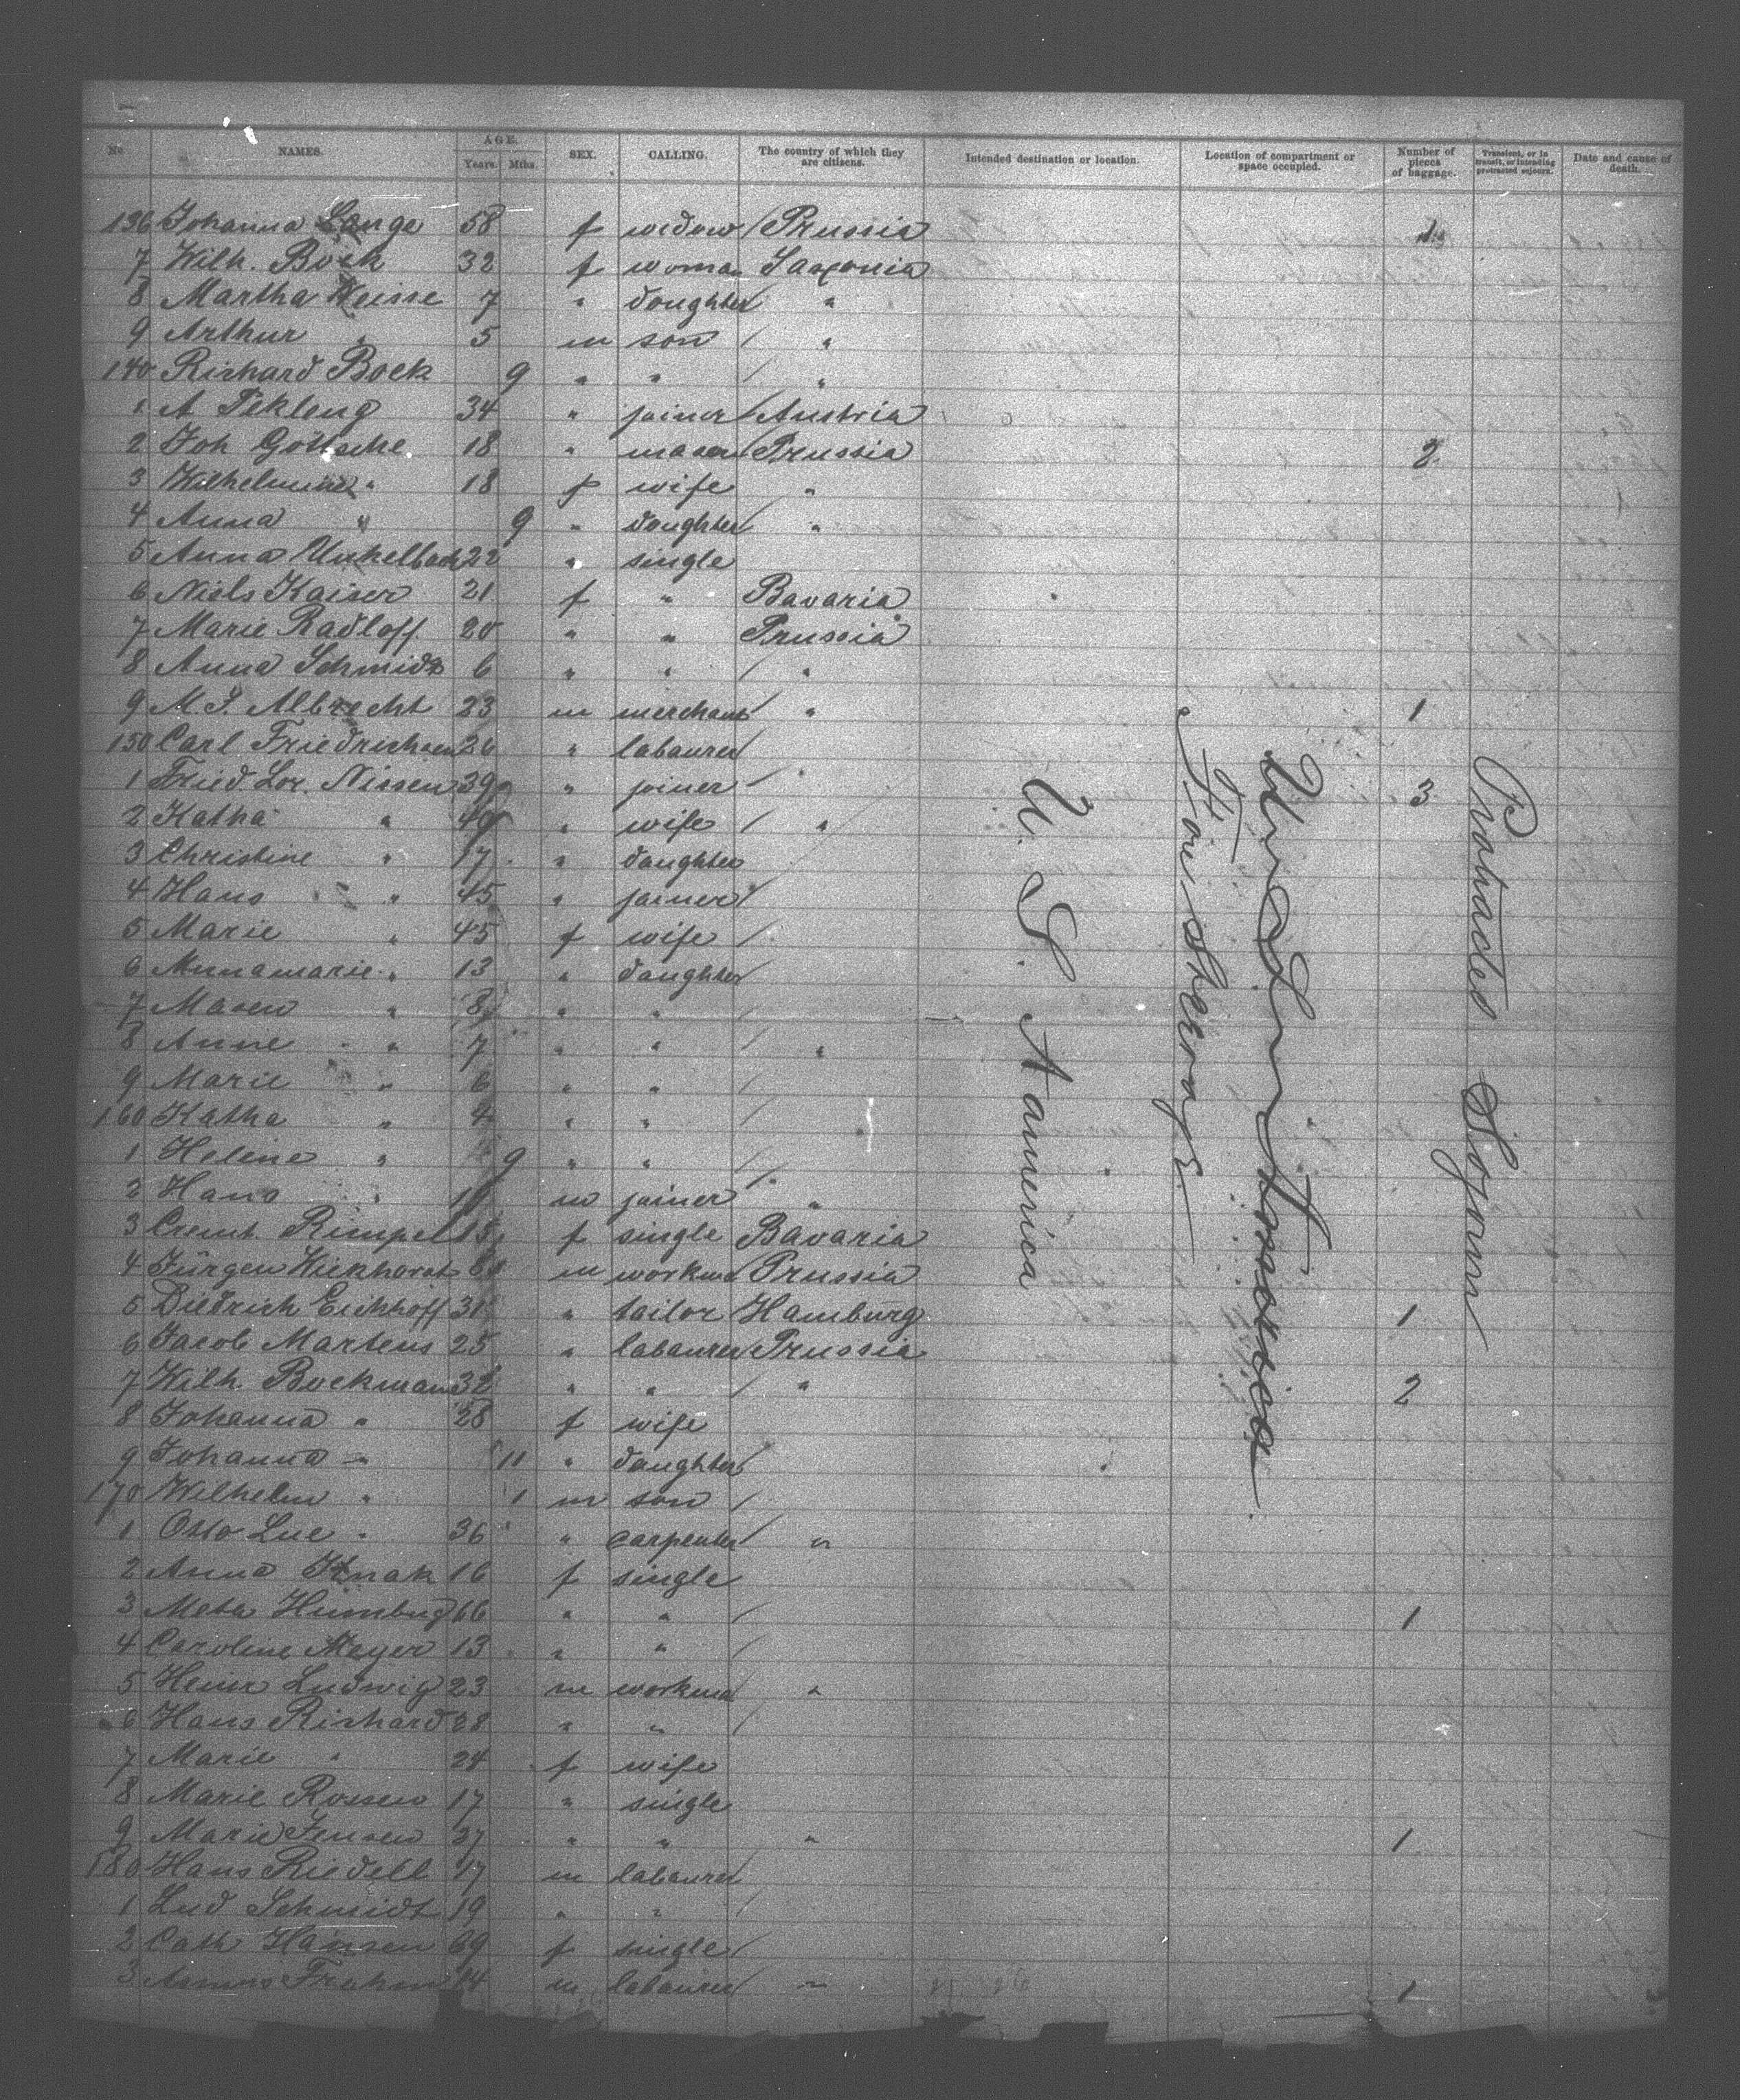 No NAMES. AGE. Years. Mths. SEX. CALLING. The country of which they are citizens. Intended destination or location. Location of compartment or space occupied. Number of pieces of baggage. Transient, or in transit, or intending protracted sojourn. Date and cause of death.
136 Johanna Lange 58 f widow / Prussia
7 Wilh. Bock 32 f woman Saxonia
8 Martha Weisse 7 " doughter / "
9 Arthur " 5 m son / "
140 Richard Bock 9 " " / "
1 A 34 " joiner / Austria
2 Joh Göttsche 18 " mason Prussia 2
3 Wilhelmine " 18 f wife "
4 Anna " 9 " doughter "
5 Anna Unkelbach 22 " single
6 Niels Kaiser 21 f " Bavaria
7 Marie Radloff 20 " " Prussia
8 Anna Schmidt 6 " " / "
9 M. J. Albrecht 23 m merchant / " 1
150 Carl Friedrichsen 26 " labaurer
1 Fried Lor. Nissen 39 " joiner / " 3
2 Katha " 40 " wife / "
3 Christine " 17 " daughter
4 Hans " 45 " joiner /
5 Marie " 45 f wife /
6 Annamarie " 13 " daughter
7 Maren " 8 " " /
8 Anne " 7 " " / "
9 Marie " 6 " " /
160 Katha " 4 " " / "
1 Heline " 9 " " /
2 Hans " m joiner "
3 Rimpel 15 f single Bavaria
4 Jürgen Wiekhorst m workma Prussia
5 Diedrich Eichhoff 31 " tailor Hamburg 1
6 Jacob Martens 25 " labaurer Prussia
7 Wilh. Bockmann 32 " " / " 2
8 Johanna " 28 f wife
9 Johanna " 11 " daughter
170 Wilhelm " 1 m son /
1 Otto Lue " 36 " carpenter / "
2 Anna 16 f single
3 Meta Humbug 66 " " / 1
4 Caroline Meyer 13 " " /
5 Heinr Ludwig 23 m workma "
6 Hans Richard 28 " " /
7 Marie " 24 f wife
8 Marie Rossen 17 " single
9 Marie Jensen 37 " " " 1
180 Hans Riedell 17 m labaurer
1 Lud Schmidt 19 " " /
2 Cath Hansen 69 f single /
3 Asmus Frahm 14 m labaurer / " 1
U. S. America
Fore Steerage
Protracted Sojourn